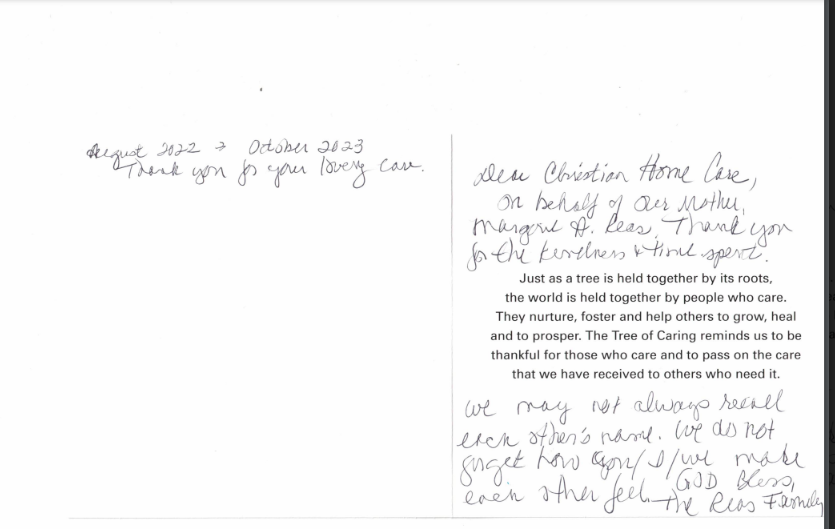 August 2022 → October 2023
Thank you for your lovely care.
Dear Christian Home Care,
On behalf of Our Mother,
A. Reas, Thank you
for the kindness & time spent.
Just as a tree is held together by its roots,
the world is held together by people who care.
They nurture, foster and help others to grow, heal
and to prosper. The Tree of Caring reminds us to be
thankful for those who care and to pass on the care
that we have received to others who need it.
We may not always recall
each other's name. We do not
forget how you/I/we make
each other feel. GOD Bless,
The Reas Family